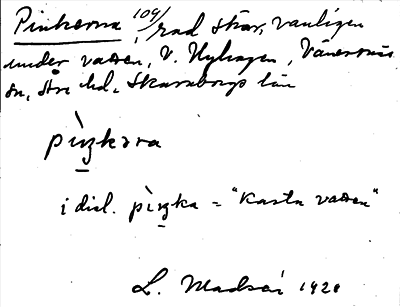 Pinkarna, 104/ rad skär, vanligen
under vatten, V. Nyhagen, Vänersnäs
sn, Åse hd, Skaraborgs län
pìŋkara
i dial. pìŋka = "Kasta vatten"
L. Madsén 1920